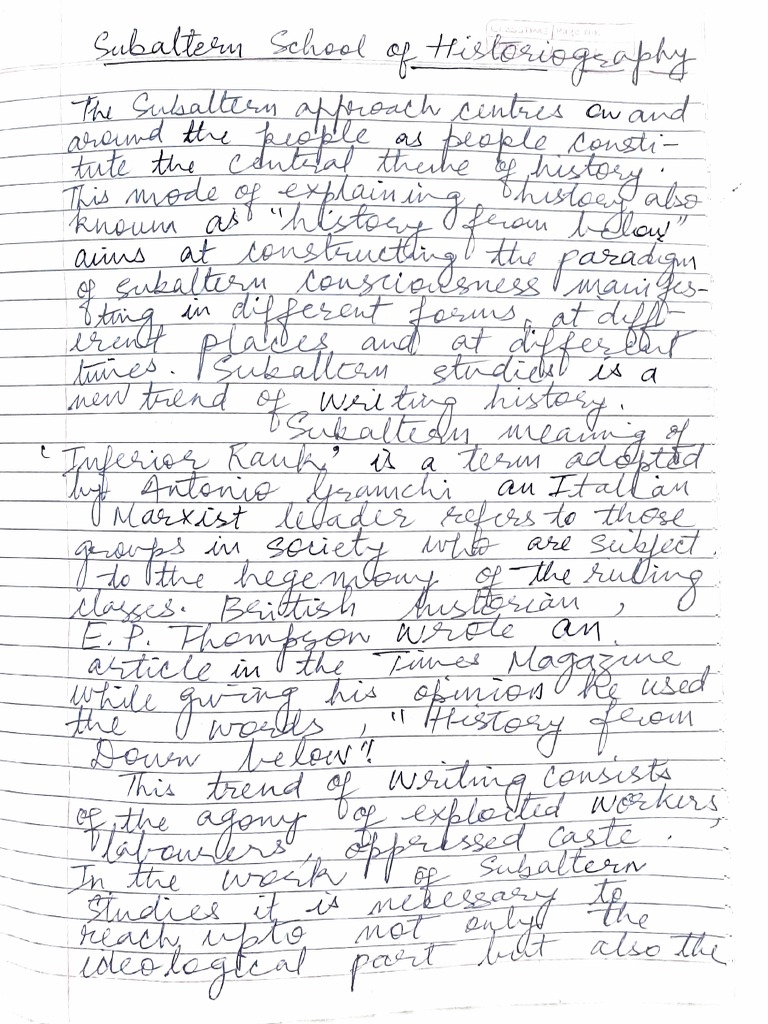 Subaltern School of Historiography
The Subaltern approach centres on and
around the people as people consti-
tute the central theme of history.
This mode of explaining history also
known as "history from below"
aims at constructing the paradigm
of subaltern consciousness manifes-
ting in different forms, at diff-
erent places and at different
times. Subaltern studies is a
new trend of writing history.
Subaltern meaning of
'Inferior Rank' is a term adopted
by Antonio Gramchi an Italian
Marxist leader refers to those
groups in society who are subject
to the hegemony of the ruling
classes. British historian,
E.P. Thompson wrote an
article in the Times Magazine
while giving his opinion he used
the words, "History from
Down below".
This trend of writing consists
of the agony of exploited workers,
labourers, oppressed caste.
In the work of Subaltern
Studies it is necessary to
reach upto not only the
ideological part but also the